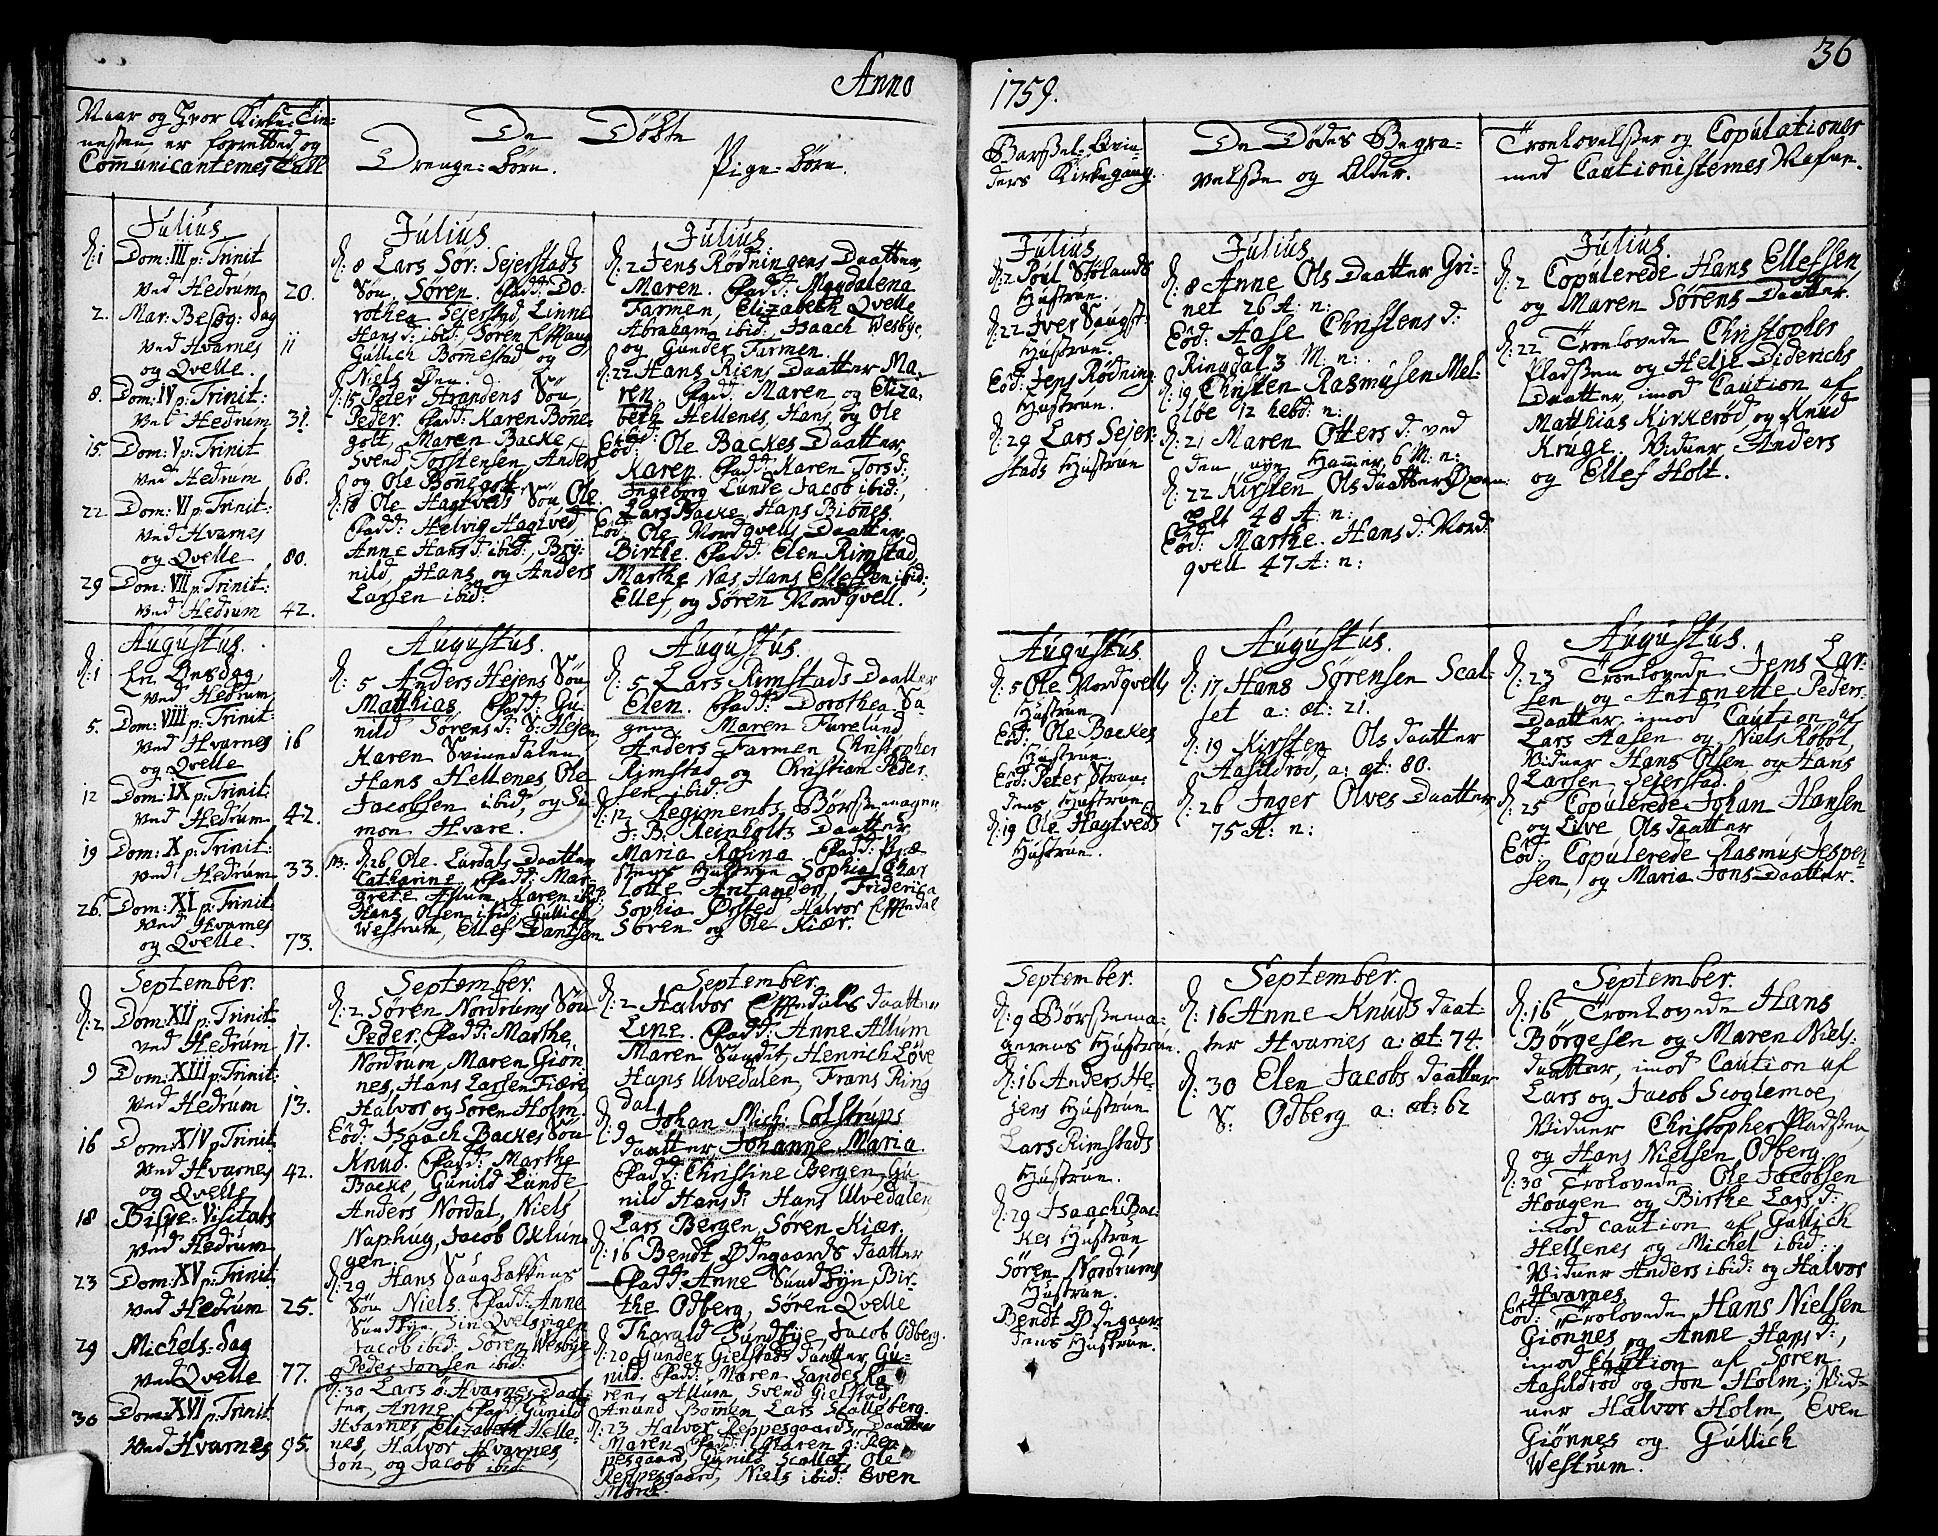 Anno
1759.
36
Naar og Hvor Kirke-Tie-
nesten er forretted, og
Communicanternes Tall
De Døbte
Drenge-børn.
Pige-børn.
Barsel-Qvin-
ders Kirkegang.
De Dødes Begra-
velsse og Alder.
Trolovelsser og Copulationer
med Cautionisternes Nafne.
Julius.
d: 1 Dom: III p: Trinit
ved Hedrum 20.
2. Mar: Besøg: dag
ved Hvarnes 11
og Qvelle.
8. Dom: IV p: Trinit:
ved Hedrum 31.
15. Dom: V p: Trinit
ved Hedrum 68.
22. Dom: VI p: Trinit:
ved Hvarnes
og Qvelle 80.
29 Dom: VII p: Trinit:
ved Hedrum 42.
Julius.
d: 8 Lars Sør: Sejerstads
Søn Søren. Fadd: Do-
rothea Sejerstad, Linne
Hans d: ibid: Søren
Gullich Bomestad, og
Niels Øen.
d: 15 Peter Strandens Søn
Peder. Fadd: Karen Bone-
golt, Maren Backe,
Svend Torstensen, Anders
og Ole Bonegolt.
d: 18 Ole Hagtveds Søn Ole.
Fadd: Helvig Hagtved,
Anne Hans d: ibid:, Bry-
nild, Hans og Anders
Larsen ibid:
Julius.
d: 2 Jens Rødningens Daatter
Maren. Fadd: Magdalena
Farmen, Elizabeth Qvelle
Abraham ibid: Isaach Wesbye,
og Gunder Farmen.
d: 22 Hans Riens Daatter Ma-
ren. Fadd: Maren og Eliza-
beth Hellenes, Hans og Ole
ibid:
Eod: Ole Backes Daatter
Karen Fadd: Karen Torsd:
Ingeborg Lunde, Jacob ibid:,
Lars Backe, Hans Bibnes.
Eod: Ole Nordqvells Daatter
Birthe. Fadd: Elen Rimstad
Marthe Næs, Hans Ellefsen ibid;
Ellef, og Søren Nordqvell.
Julius.
d: 2 Poul Stølands
Hustrue.
d: 22 Iver Saugst-
Hustrue.
Eod: Jens Rødning.
Hustrue.
d: 29 Lars Sejer-
stads Hustrue
Julius.
d: 8 Anne Ols Daatter Gri-
net 26 A: n:
Eod: Aase Christens d:
Ringdal 3 M: n:
d: 19 Christen Rasmusen Mel-
løe 12 hebd: n:
d: 21 Maren Otters d: ved
den nye Hammer 6 M: n:
d: 22 Kirsten Ols Daatter Oxen-
holt 48 A: n:
Eod: Marthe Hans d: Nord-
qvell 47 A: n:
Julius.
d: 2 Copulerede Hans Ellefsen
og Maren Sørens Daatter.
d: 22 Trolovede Christopher
Pladssen og Helje Diderichs
Daatter, imod Caution af
Matthias Kirkerød, og Knud
Kruge. Vidner, Anders
og Ellef Holt.
Augustus.
d: 1 En Onsdag
ved Hedrum
5. Dom: VIII p: Trinit:
ved Hvarnes 16
og Qvelle
12 Dom: IX p: Trinit:
ved Hedrum 42.
19 Dom: X p: Trinit:
ved Hedrum 33.
26. Dom: XI p: Trinit
ved Hvarnes
og Qvelle. 73.
Augustus.
d: 5 Anders Hejens Søn
Matthias. Fadd: Gu-
nild Sørens d: S: Hejen,
Karen Svinedalen,
Hans Hellenes, Ole
Jacobsen ibid, og Si-
mon Hvare.
NB. d: 26 Ole Lurdals Daatter
Catharine, Fadd: Mar-
grete Allum, Karen ibid:
Hans Olsen ibid: Gullich
Westrum, Ellef Dantsen
Augustus.
d: 5 Lars Rimstads Daatter
Elen. Fadd: Dorothea Sa-
gene, Maren Furelund,
Anders Farmen Christopher
Rimstad, og Christian Peder-
sen ibid:
d: 12 Regiments Børssemager
J: B: Reinholtz Daatter
Maria Rosina Fadd: Præ-
stens Hustrue Sophia Char
lotte Antander, Friderica
Sophia Ørsted, Halvor
Søren og Ole Kiær.
Augustus.
d: 5 Ole Nordqvells
Hustrue
Eod: Ole Backes
Hustrue
Eod: Peter Stran-
dens Hustrue
d: 19 Ole Hagtveds
Hustrue.
Augustus.
d: 17 Hans Sørensen Scal-
let a: æt: 21.
d: 19 Kirsten Ols daatter
Aasildrød, a: æt: 80.
d: 26 Inger Olves Daatter
75 A: n:
Augustus.
d: 23 Trolovede Jens Lar-
sen og Antonette Peders
Daatter, imod Caution af
Lars Aasen og Niels Røbøl,
Vidner Hans Olsen og Hans
Larsen Sejerstad.
d: 25 Copulerede Johan Hansen
og Live Ols daatter
Eod: Copulerede Rasmus Jesper-
sen, og Maria Jons Daatter.
September.
d: 2 Dom: XII p: Trinit:
ved Hedrum 17.
9 Dom: XIII p: Trinit:
ved Hedrum 13.
16 Dom: XIV p: Trinit:
ved Hvarnes 42.
og Qvelle
18 Bispe-Visitats
ved Hedrum
23 Dom: XV p: Trinit:
ved Hedrum 25.
29 Michels-Dag
ved Qvelle 77.
30 Dom: XVI p: Trinit
ved Hvarnes 95.
September.
d: 2 Søren Nordrums Søn
Peder. Fadd: Marthe
Nordrum, Maren Giøn-
nes, Hans Larsen Fiære
Halvor og Søren Holm.
Eod: Isaach Backes Søn
Knud. Fadd: Marthe
Backe, Gunild Lunde
Anders Nordal, Niels
Naphug, Jacob Oklun-
gen.
d: 29 Hans Saugbakkens
Søn Niels. Fadd: Anne
Sundbye, Siri Qvelsøgen
Jacob ibid: Søren Wesbye
og Peder Jonsen ibid:
d: 30 Lars ø: Hvarnes Daat-
ter, Anne Fadd: Gunild
Hvarnes, Elizabeth Helle-
nes, Halvor Hvarnes,
Jon, og Jacob ibid:
September.
d: 2 Halvor daatter
Line. Fadd: Anne Allum
Maren Sundet, Henrich Løve
Hans Ulvedalen, Frans Ring
dal
d: 9 Johan Mich: Colstrups
daatter, Johanne Maria.
Fadd: Christine Bergen, Gu-
nild Hans d: Hans Ulvedalen,
Lars Bergen, Søren Kiær.
d: 16 Bendt Ødegaards Daatter
Fadd: Anne Sundbye, Bir-
the Odberg, Søren Qvelle
Tharald Sundbye, Jacob Odberg.
d: 20 Gunder Gielstads Daatter, Gu-
nild. Fadd: Maren Sande, Ka-
ren Allum, Svend Gielstad,
Anund Bommen Lars Skalleberg.
d: 23 Halvor Reppesgaards Daatter
Maren. Fadd: Maren ø: Rep-
pesgaard, Gunild Scallet, Ole
Reppesgaard, Niels ibid: Even
Mone.
September.
d: 9 Børssema-
gerens Hustrue.
d: 16 Anders He-
jens Hustrue
Lars Rimstads
Hustrue.
d: 29 Isaach Bac-
kes Hustrue
Søren Nordrums
Hustrue.
Bendt Ødegaar-
dens Hustrue.
September.
d: 16 Anne Knuds Daat-
ter Hvarnes a: æt: 74.
d: 30 Elen Jacobs Daatter
S: Odberg a: æt: 62
September.
d: 16 Trolovede Hans
Børgesen og Maren Niels-
daatter, imod Caution af
Lars og Jacob Scoglemoe,
Vidner Christopher Pladssen,
og Hans Nielsen Odberg.
d: 30 Trolovede Ole Jacobsen
Hougen og Birthe Lars d:
imod caution af Gullich
Hellenes og Michel ibid:
Vidner Anders ibid: og Halvor
Hvarnes
Eod: Trolovede Hans Nielsen
Giønnes og Anne Hans d:,
imod Caution af Søren
Aasildrød og Jon Holm; Vid-
ner Halvor Holm, Even
Giønnes og Gullich
Westrum.